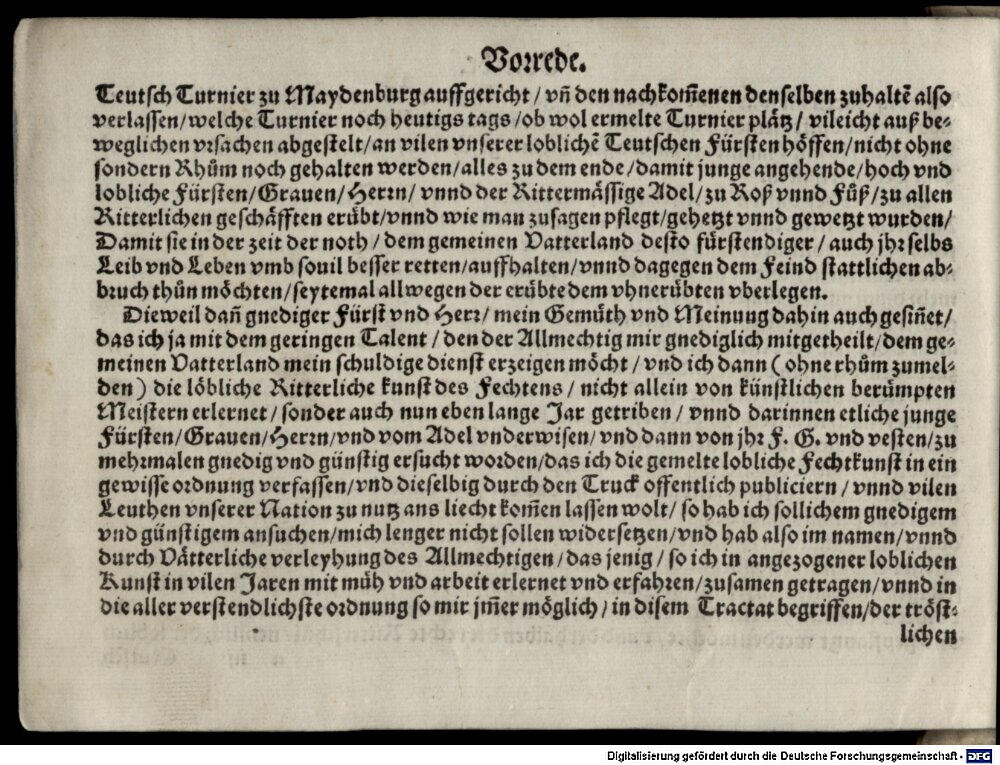 Vorrede.
Teutsch Turnier zu Maydenburg auffgericht / vñ den nachkom̃enen denselben zuhaltẽ also
verlassen/welche Turnier noch heutigs tags /ob wol ermelte Turnier plätz/ vileicht auß be⸗
weglichen vrsachen abgestelt/an vilen vnserer loblichẽ Teutschen Fürsten höffen/nicht ohne
sondern Rhům noch gehalten werden/alles zu dem ende/damit junge angehende/hoch vnd
lobliche Fürsten/Grauen/Herrn/ vnnd der Rittermässige Adel/zu Roß vnnd Fůß/zu allen
Ritterlichen geschäfften erübt/vnnd wie man zusagen pflegt/gehetzt vnnd gewetzt wurden/
Damit sie in der zeit der noth / dem gemeinen Vatterland desto fürstendiger / auch jhr selbs
Leib vnd Leben vmb souil besser retten/auffhalten/vnnd dagegen dem Feind stattlichen ab⸗
bruch thůn möchten/seytemal allwegen der erübte dem vhnerübten vberlegen.
Dieweil dañ gnediger Fürst vnd Herr/ mein Gemüth vnd Meinung dahin auch gesiñet/
das ich ja mit dem geringen Talent / den der Allmechtig mir gnediglich mitgetheilt/dem ge⸗
meinen Vatterland mein schuldige dienst erzeigen möcht / vnd ich dann ( ohne rhům zumel⸗
den ) die löbliche Ritterliche kunst des Fechtens / nicht allein von künstlichen berümpten
Meistern erlernet / sonder auch nun eben lange Jar getriben / vnnd darinnen etliche junge
Fürsten/Grauen/Herrn/vnd vom Adel vnderwisen/ vnd dann von jhr F. G. vnd vesten/zu
mehrmalen gnedig vnd günstig ersucht worden/das ich die gemelte lobliche Fechtkunst in ein
gewisse ordnung verfassen/vnd dieselbig durch den Truck offentlich publiciern / vnnd vilen
Leuthen vnserer Nation zu nutz ans liecht kom̃en lassen wolt/ so hab ich sollichem gnedigem
vnd günstigem ansuchen/mich lenger nicht sollen widersetzen/vnd hab also im namen/vnnd
durch Vätterliche verleyhung des Allmechtigen / das jenig / so ich in angezogener loblichen
Kunst in vilen Jaren mit müh vnd arbeit erlernet vnd erfahren/zusamen getragen/vnnd in
die aller verstendlichste ordnung so mir jm̃er möglich / in disem Tractat begriffen/der tröst⸗
lichen
Digitalisierung gefördert durch die Deutsche Forschungsgemeinschaft - DFG